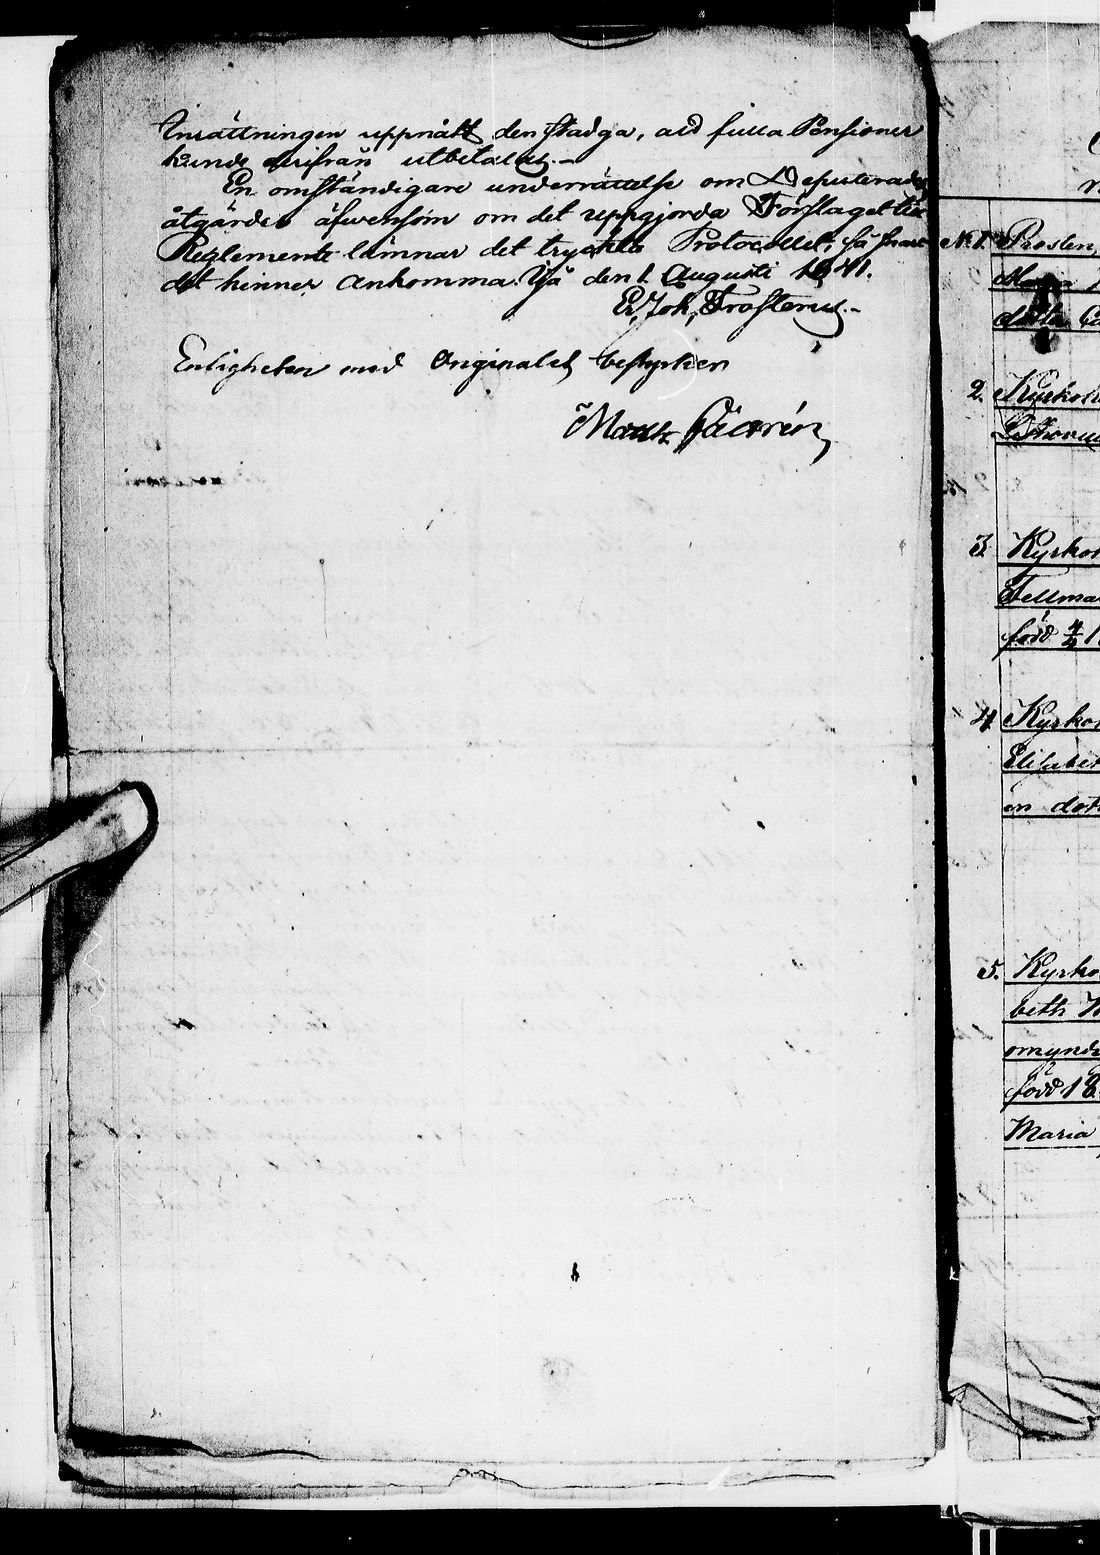 Inrättningen uppnått den stadga, att fulla Pensioner
kunde derifrån utbetalas.–
En omständigare underrättelse om Deputerades
åtgärder äfwensom om det uppgjorda Förslaget till
Reglemente lämnar det tryckta Protocollet, så snart
det hinner ankomma. Ijå den 1 Augusti 1841.
Er. Joh. Frosterus.–
Enligheten med Originalet bestyrker
Matts
N:o 1. Prosten,
2. Kyrkoh
3. Kyrkoh
Fellma
född
4 Kyrkoh
Elisabet
en dot
5. Kyrko
beth
omynd
född 18
Maria